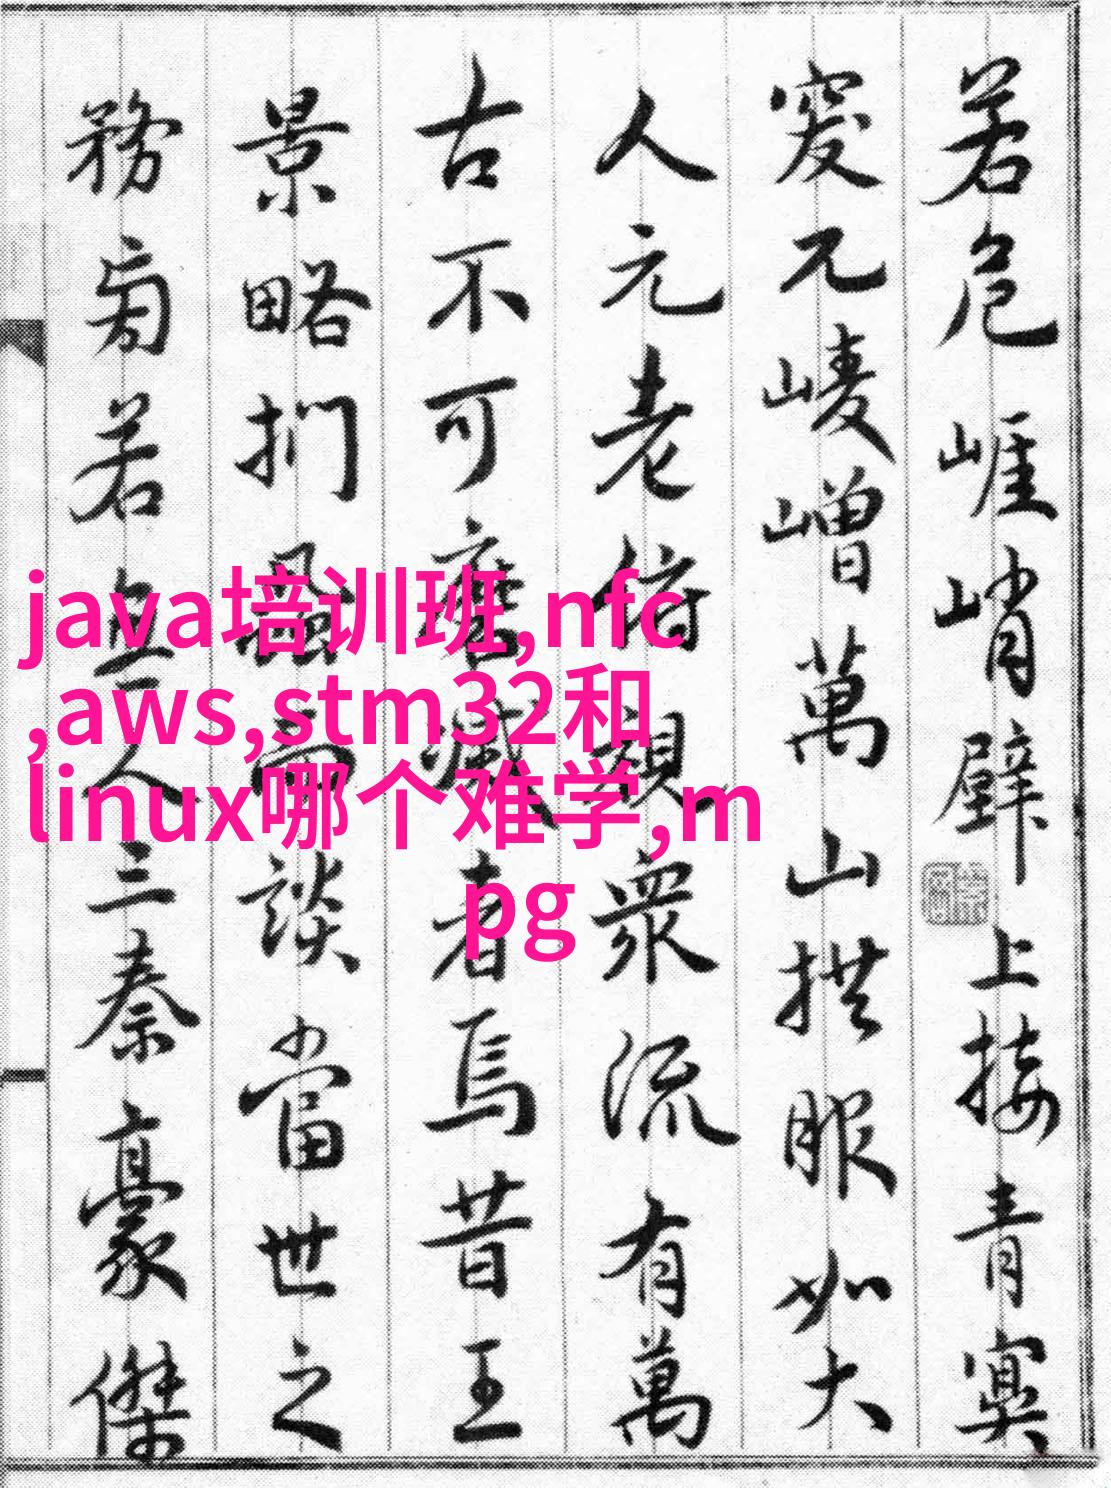 若危崕峭壁上接青冥
突兀崚嶒萬山拱服如大
人元老俯視衆流有萬
古不可磨滅者焉昔王
景略捫蝨而談當世之
務旁若無人三秦豪傑
java培训班,nfc
,aws,stm32和
linux哪个难学,m
pg